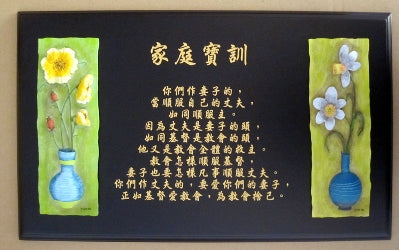 家庭寶訓
你們作妻子的，
當順服自己的丈夫，
如同順服主。
因為丈夫是妻子的頭，
如同基督是教會的頭，
他又是教會全體的救主。
教會怎樣順服基督，
妻子也要怎樣凡事順服丈夫。
你們作丈夫的，要愛你們的妻子，
正如基督愛教會，為教會捨己。